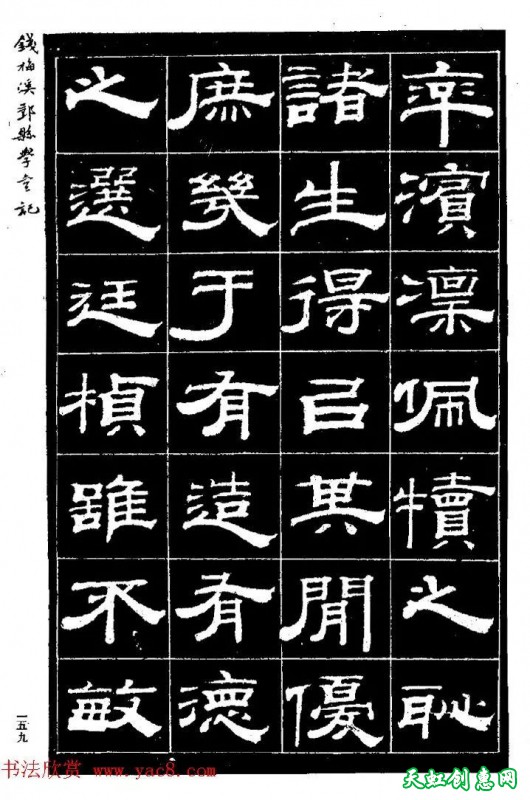 率濱凜佩犢之恥
諸生得㠯其閒優
庶幾于有造有德
之選廷楨雖不敏
錢梅溪縣學記
一五九
书法欣赏 www.yac8.com
天虹创惠网